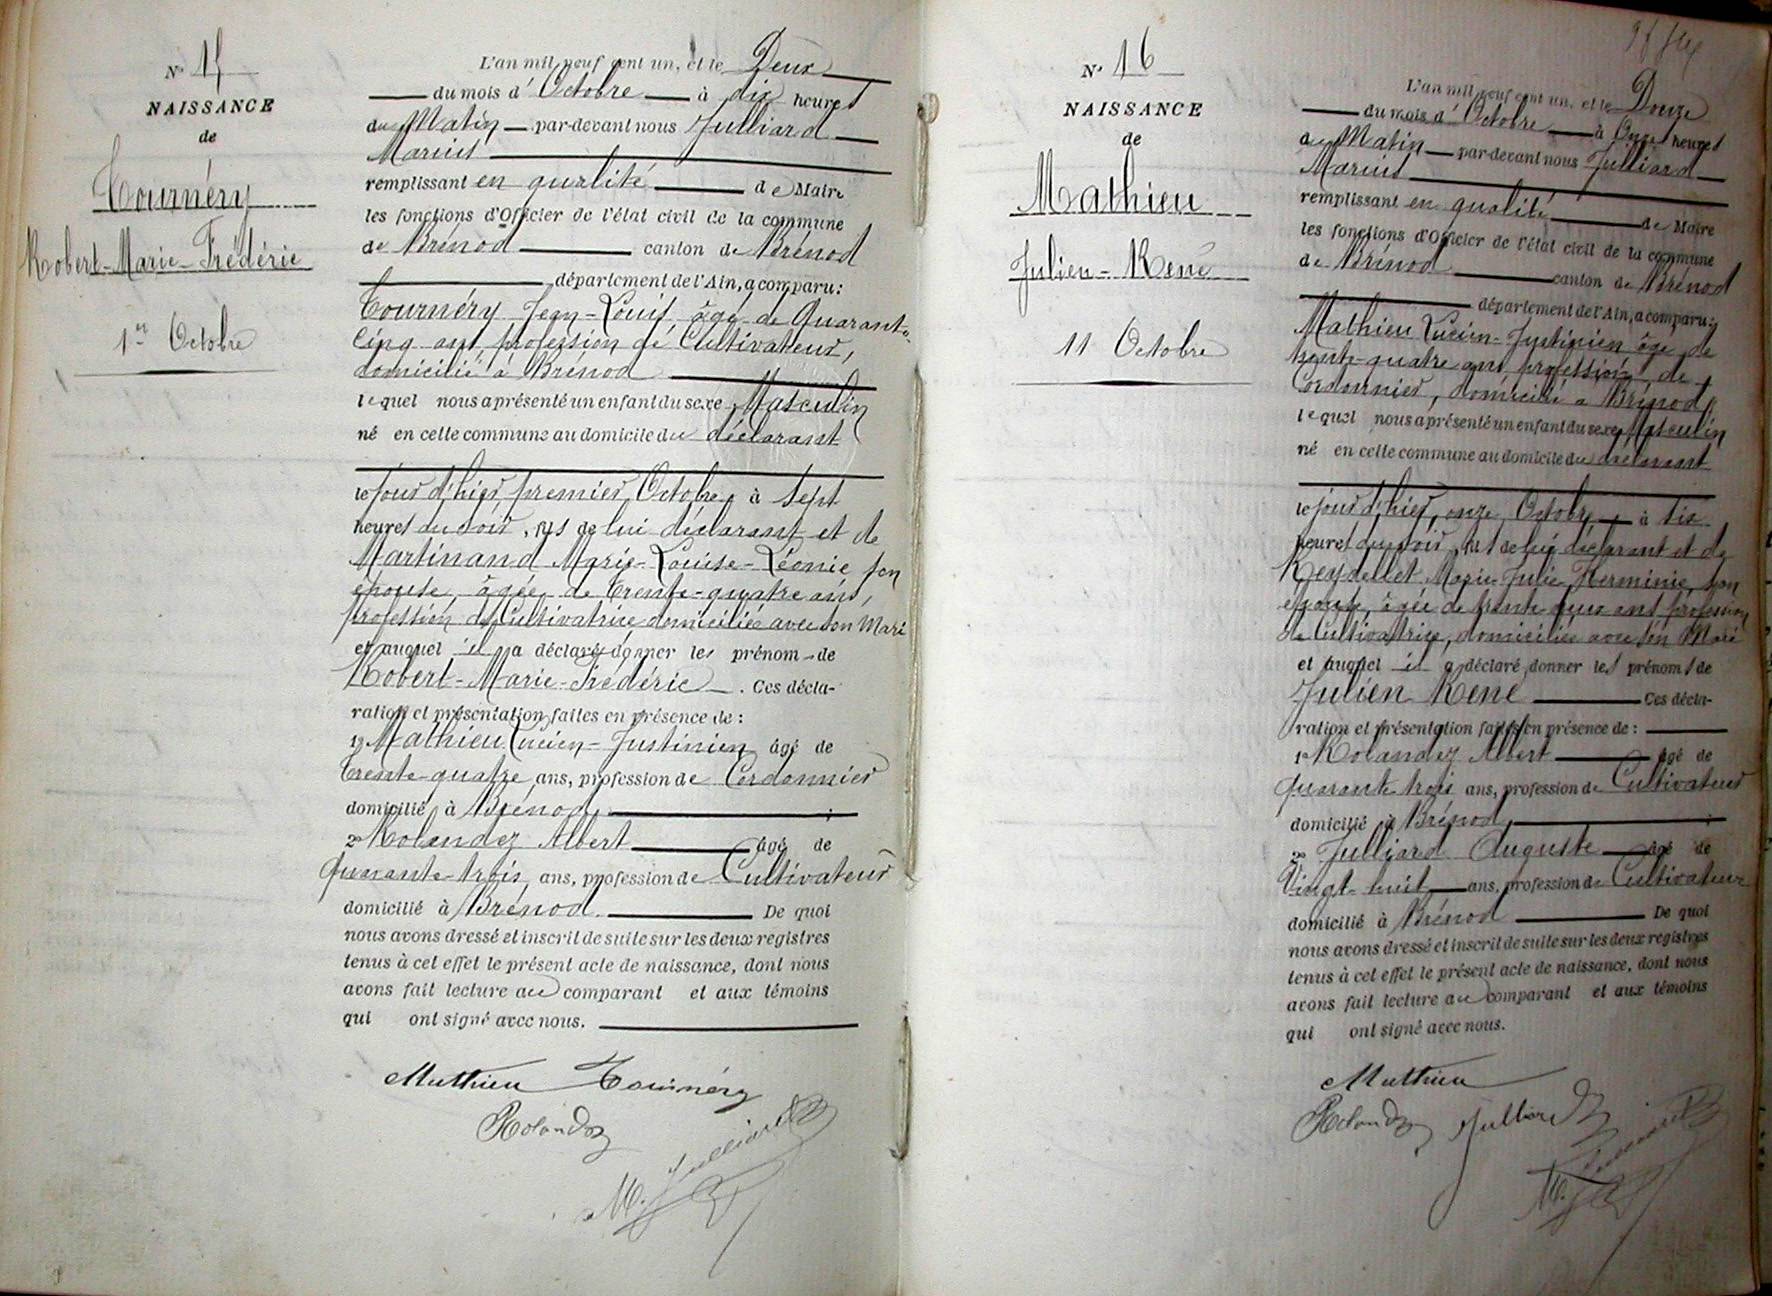 N° 15
NAISSANCE
de
Tournéry
Robert-Marie-Frédéric
1er Octobre
L'an mil neuf cent un, et le Deux
du mois d'Octobre à dix heures
du Matin par-devant nous Julliard
Marius
remplissant en qualité de Maire
les fonctions d'Officier de l'état civil de la commune
de Brénod canton de Brénod
département de l'Ain, a comparu :
Tournéry Jean-Louis âgé de Quarante-
Cinq ans profession de Cultivateur,
domicilié à Brénod
lequel nous a présenté un enfant du sexe Masculin
né en cette commune au domicile du déclarant
le jour d'hier premier Octobre, à sept
heures du soir, fils de lui déclarant et de
Martinand Marie-Louise-Léonie son
épouse, âgée de trente-quatre ans,
profession de Cultivatrice domiciliée avec son Mari
et auquel il a déclaré donner les prénom de
Robert-Marie-Frédéric. Ces décla-
ration et présentation faites en présence de :
1° Mathieu Lucien-Justinien âgé de
trente-quatre ans, profession de Cordonnier
domicilié à Brénod ;
2° Rolandez Albert âgé de
quarante-trois ans, profession de Cultivateur
domicilié à Brénod. De quoi
nous avons dressé et inscrit de suite sur les deux registres
tenus à cet effet le présent acte de naissance, dont nous
avons fait lecture au comparant et aux témoins
qui ont signé avec nous.
Mathieu Tournéry
Rolandez
M. Julliard
N° 16
NAISSANCE
de
Mathieu
Julien-René
11 Octobre
L'an mil neuf cent un, et le Douze
du mois d'Octobre à Onze heures
du Matin par-devant nous Julliard
Marius
remplissant en qualité de Maire
les fonctions d'Officier de l'état civil de la commune
de Brénod canton de Brénod
département de l'Ain, a comparu :
Mathieu Lucien-Justinien âgé de
trente-quatre ans profession de
Cordonnier, domicilié à Brénod,
lequel nous a présenté un enfant du sexe Masculin
né en cette commune au domicile du déclarant
le jour d'hier, onze Octobre à six
heures du soir, fils de lui déclarant et de
Reydellet Marie-Julie Herminie, son
épouse, âgée de trente deux ans profession
de Cultivatrice, domiciliée avec son Mari
et auquel il a déclaré donner les prénoms de
Julien René Ces décla-
ration et présentation faites en présence de :
1° Rolandez Albert âgé de
quarante trois ans, profession de Cultivateur
domicilié à Brénod, ;
2° Julliard Auguste âgé de
Vingt-huit ans, profession de Cultivateur
domicilié à Brénod De quoi
nous avons dressé et inscrit de suite sur les deux registres
tenus à cet effet le présent acte de naissance, dont nous
avons fait lecture au comparant et aux témoins
qui ont signé avec nous.
Mathieu
Rolandez Julliard
M. Julliard